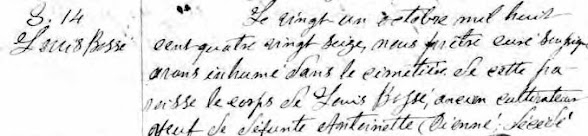 S. 14
Louis Bossé
Le vingt un octobre mil huit
cent quatre vingt seize, nous prêtre curé soussigné
avons inhumé dans le cimetière de cette pa-
roisse le corps de Louis Bossé, ancien cultivateur
veuf de défunte Antoinette Dienne décédé